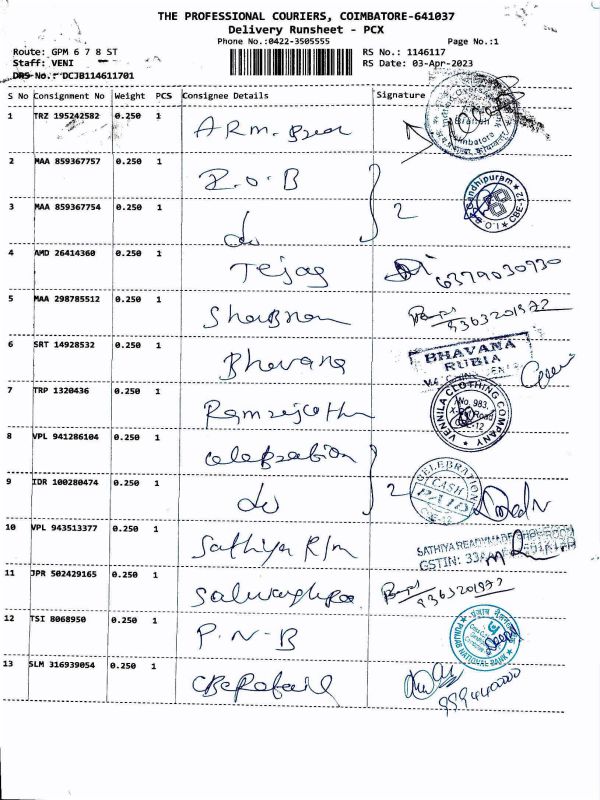 THE PROFESSIONAL COURIERS, COIMBATORE-641037
Delivery Runsheet - PCX
Phone No.:0422-3505555 Page No.:1
Route: GPM 6 7 8 ST RS No.: 1146117
Staff: VENI RS Date: 03-Apr-2023
DRS No.: DCJB114611701
S No Consignment No Weight PCS Consignee Details Signature
1 TRZ 195242582 0.250 1
2 MAA 859367757 0.250 1 I.O.B
3 MAA 859367754 0.250 1 do 2
Gandhipuram I.O.B CBE-12
4 AMD 26414360 0.250 1 Tejas 6379030930
5 MAA 298785512 0.250 1 9363201972
6 SRT 14928532 0.250 1 Bhavana
BHAVANA
RUBIA
7 TRP 1320436 0.250 1
VENNILA CLOTHING COMPANY
No. 983,
8 VPL 941286104 0.250 1 celebration
9 IDR 100280474 0.250 1 do 2
CELEBRATION
CASH
10 VPL 943513377 0.250 1 Sathiya R/m
SATHIYA READYMADE SHOWROOM
11 JPR 502429165 0.250 1 9363201972
12 TSI 8068950 0.250 1 P.N.B
PUNJAB NATIONAL BANK
13 SLM 316939054 0.250 1